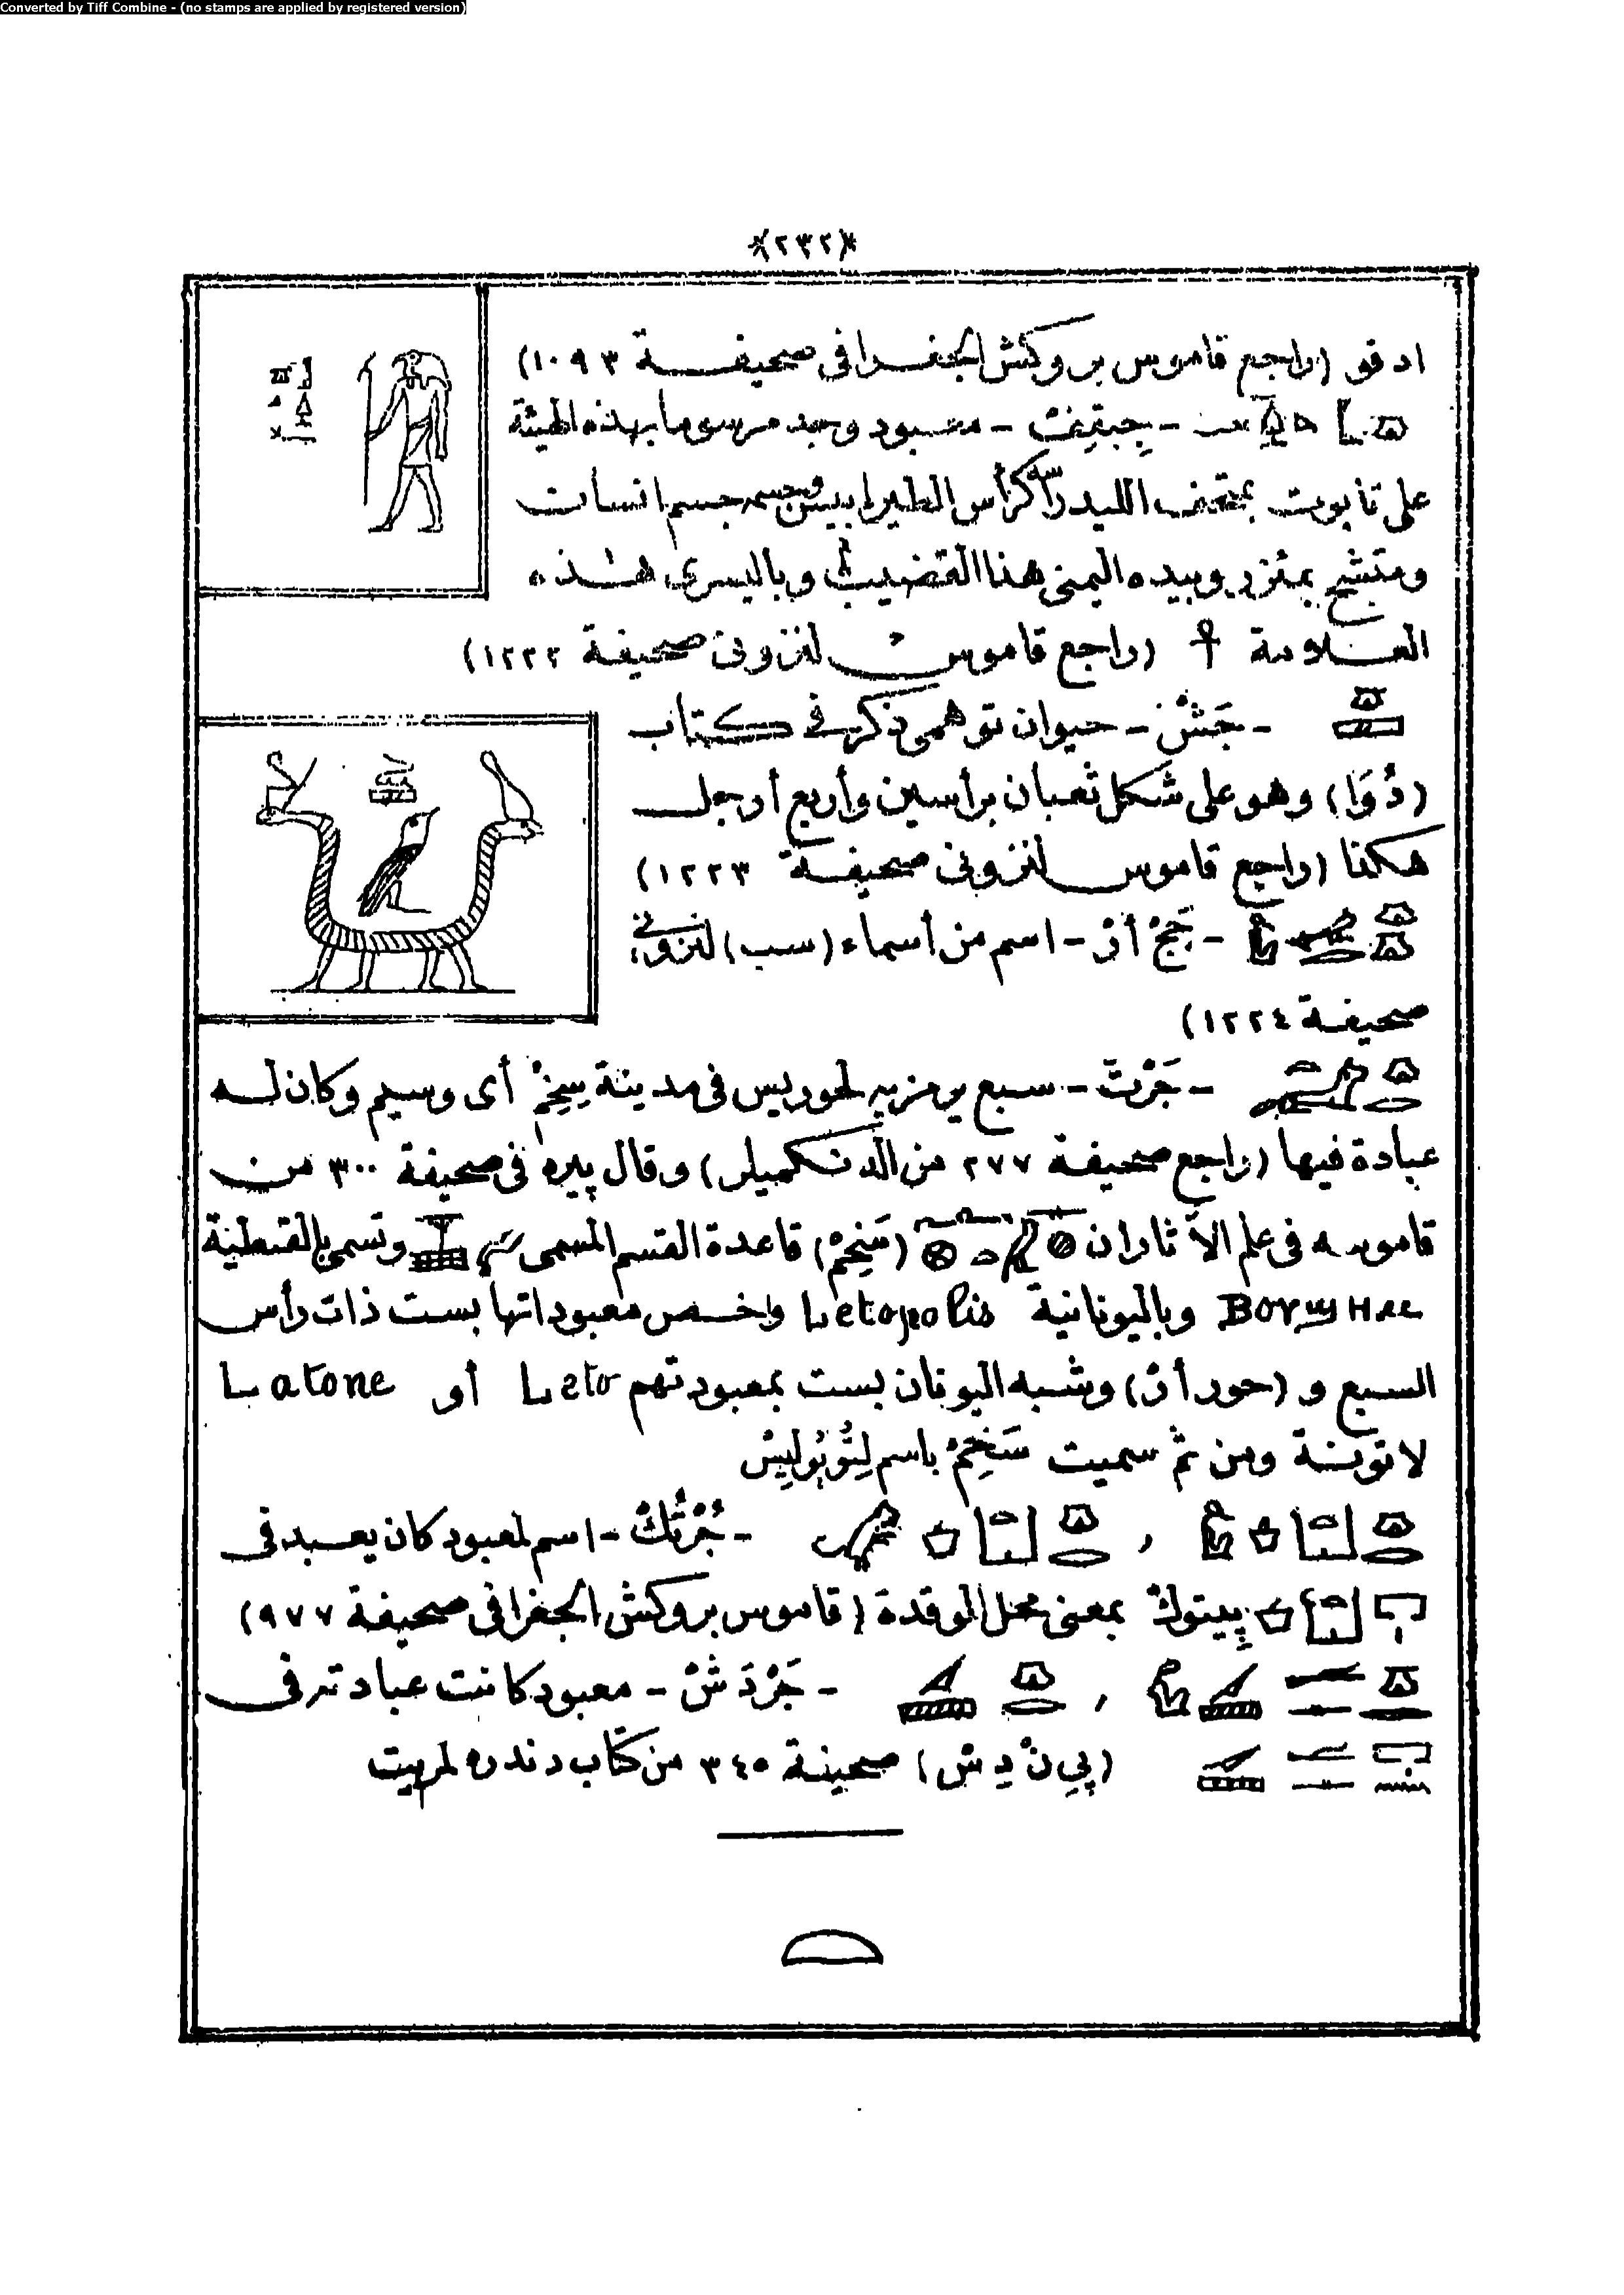 Converted by Tiff Combine - (no stamps are applied by registered version)
﴿٢٣٢﴾
ادفو (راجع قاموس بروكش الجغرافى صحيفة ١٠٩٣)
- جبقفت - معبود وجد مرسوما بهذه الهيئة
على تابوت بمتحف الليد رأسه كرأس الطير ابيس وجسمه جسم انسان
ومتشح بمئزر وبيده اليمنى هذا القضيب وباليسرى هذه
العلامة ☥ (راجع قاموس لنزونى صحيفة ١٢٢٢)
- جَشْ - حيوان توهمى ذكر فى كتاب
(دُوَا) وهو على شكل ثعبان برأسين وأربع أرجل
هكذا (راجع قاموس لنزونى صحيفة ١٢٢٣)
- جَجْ أرْ - اسم من أسماء (سب) لنزونى
صحيفة ١٢٢٤)
- جَرْتَ - سبع يرمز به لحوريس فى مدينة سِخِمْ أى وسيم وكان له
عبادة فيها (راجع صحيفة ٢٧٧ من الدنكميلر) وقال پيره فى صحيفة ٣٠٠ من
قاموسه فى علم الآثار ان (سَخِمْ) قاعدة القسم المسمى وتسمى بالقبطية
وباليونانية Letopolis واخص معبوداتها بست ذات رأس
السبع و (حور أرْ) وشبه اليونان بست بمعبودتهم Leto أو Latone
لاتونة ومن ثم سميت سَخِمْ باسم لِتُوپُولِيسْ
، - جُرْتُكْ - اسم لمعبود كان يعبد فى
پيتوك بمعنى محل الموقدة (قاموس بروكش الجغرافى صحيفة ٩٧٧)
، - جَرْدَشْ - معبود كانت عبادته فى
(پِى نْ دِسْ) صحيفة ٣٤٥ من كتاب دندره لمريت